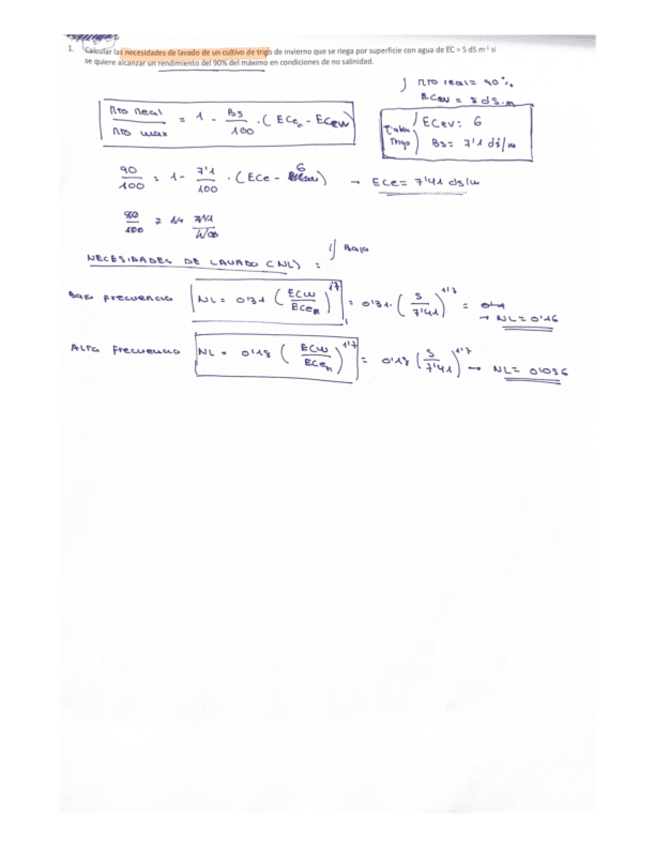 1. Calcular las necesidades de lavado de un cultivo de trigo de invierno que se riega por superficie con agua de EC = 5 dS m⁻¹ si
se quiere alcanzar un rendimiento del 90% del máximo en condiciones de no salinidad.
Rto real = 90%
Rto Real / Rto max = 1 - Bs/100 · (ECeₙ - ECeu)
Tabla Trigo
ECeu: 6
Bs = 7'1 dS/m
90/100 = 1 - 7'1/100 · (ECe - 6) → ECe = 7'41 dS/m
NECESIDADES DE LAVADO (NL) :
Baja frecuencia NL = 0'31 (ECw/ECeₙ)^1'7 = 0'31 · (5/7'41)^1'7 = → NL = 0'16
Alta frecuencia NL = 0'18 (ECw/ECeₙ)^1'7 = 0'18 (5/7'41)^1'7 → NL = 0'096